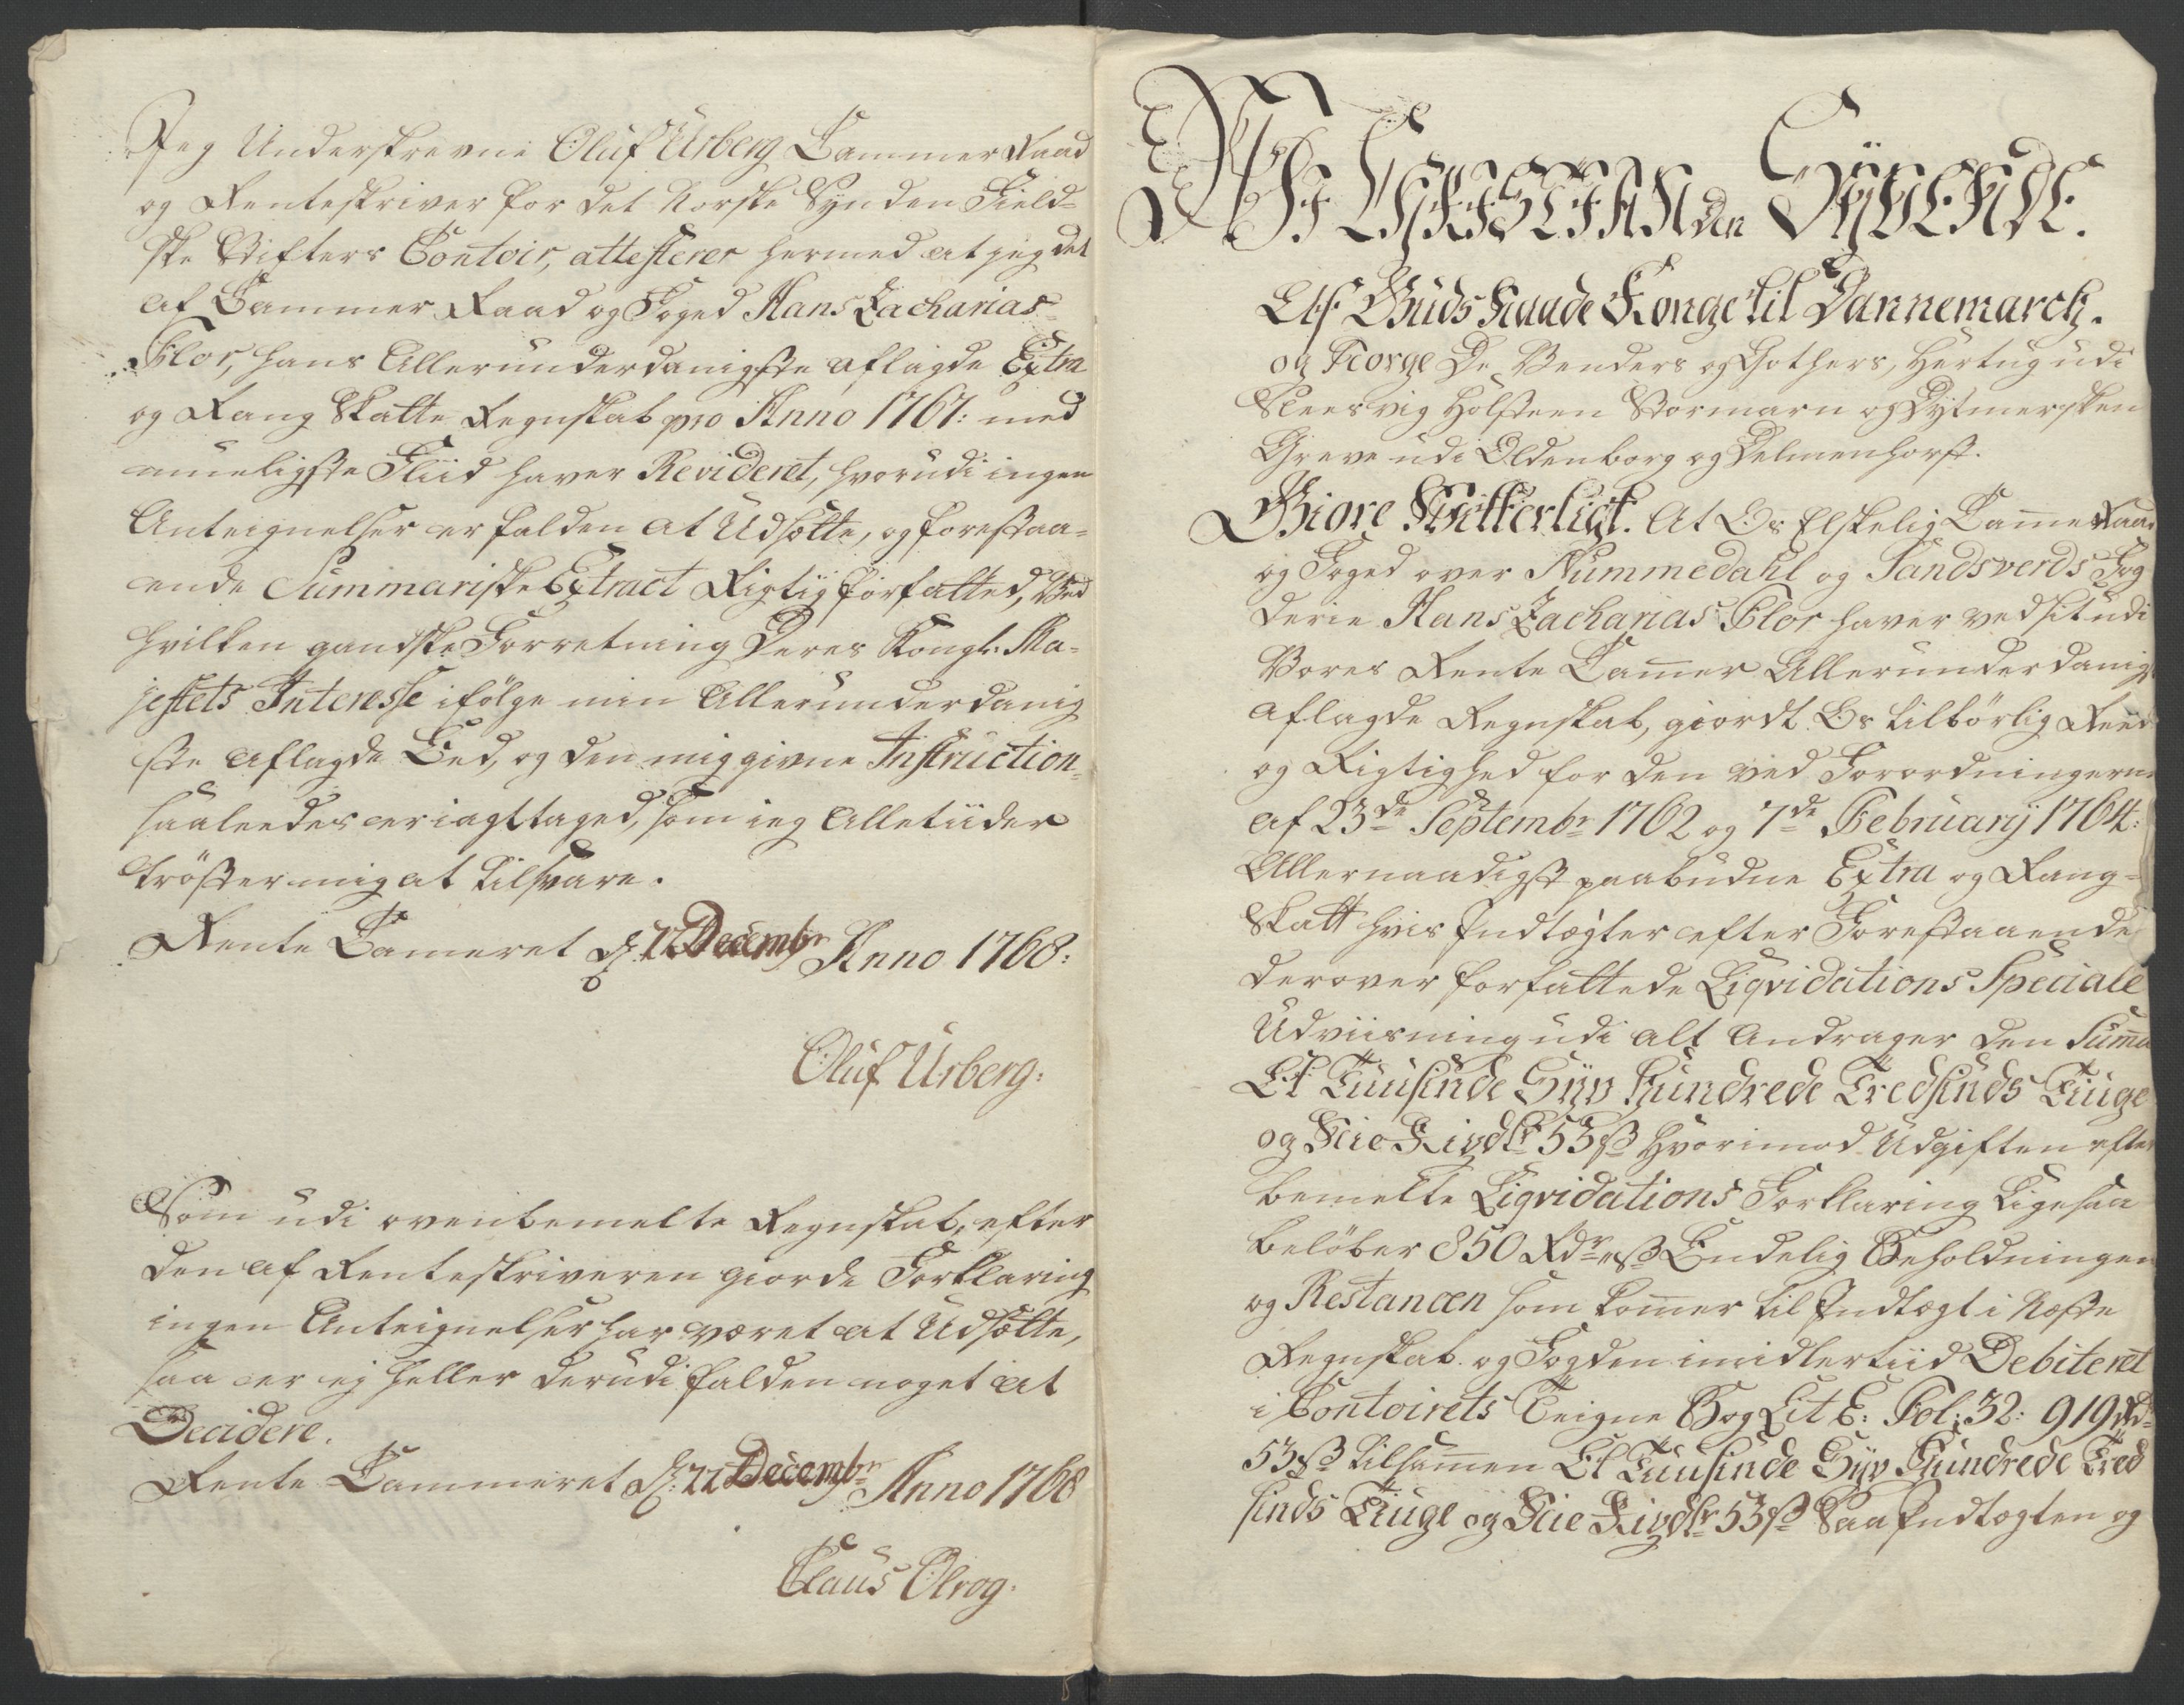 Jeg Underskrevne Oluf Urberg Cammer Raad
og Renteskriver for det Norske Synden Field-
ske Stifters Contoir, attesterer hermed at jeg det
af Cammer Raad og Foged Hans Zacharias
Flor, hans Allerunderdanigste aflagde Extra
og Rang Skatte Regnskab pro Anno 1767: med
mueligste Fliid haver Revideret, hvorudi ingen
Anteignelser er falden at Udsætte, og forestaa-
ende Summariske Extract Rigtig forfatted, Ved
hvilken gandske Forretning Deres Kongl. Ma-
jestets Interesse ifölge min Allerunderdanig
ste aflagde Eed, og den mig givne Instruction
saaleedes er iagttaged, som ieg Alletiider
tröster mig at tilsvare.
Rente Cameret d: 22 Decembr Anno 1768:
Oluf Urberg.
Som udi ovenbemelte Regnskab, efter
den af Renteskriveren giorde Forklaring
ingen Anteignelser har været at Udsætte,
saa er ej heller derudi falden noget at
Decidere.
Rente Cammeret d: 22 Decembr Anno 1768
Claus Olrog.
Wi CHRISTIAN den SYVENDE.
Af Guds Naade Konge til Dannemarck.
og Norge De Venders og Gothers, Hertug udi
Sleesvig Holsteen Stormarn og Dytmersken
Greve udi Oldenborg og Delmenhorst.
Giøre Vitterligt. At Os Elskelig Camer Raad
og Foged over Nummedahl og Sandsverds Fog
derie Hans Zacharias Flor haver ved sit udi
Vores Rente Camer Allerunderdanigst
aflagde Regnskab, giordt Os tilbörlig Reede
og Rigtighed for den ved Forordningerne
af 23de Septembr 1762 og 7de February 1764:
Allernaadigst paabudne Extra og Rang-
Skatt hvis Indtægter efter Forestaaende
derover forfattede Liqvidations Speciale
Udviisning udi alt Andrager den Suma
Et Tuusinde Syv Hundrede Tredsinds Tiuge
og Nie Rixdlr 53 ß hvorimod Udgiften efter
bemelte Liqvidations Forklaring ligesaa
belöber 850 Rdr " ß Endelig Beholdningen
og Restancen som komer til Indtægt i Næste
Regnskab og Fogden imidlertiid Debiteret
i Contoirets Teigne Bog Lit E: Fol: 32: 919 Rd
53 ß tilsamen Et Tuusinde Syv Hundrede Tred
sinds Tiuge og Nie Rixdlr 53 ß Saa Indtægten og